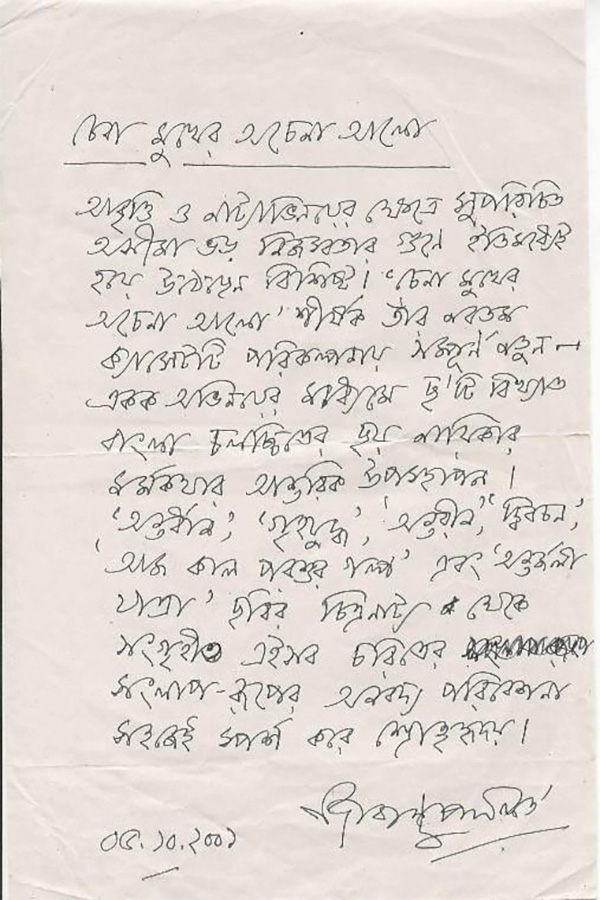 চেনা মুখের অচেনা আলো
আবৃত্তি ও নাট্যাভিনয়ের ক্ষেত্রে সুপরিচিত
ভদ্র নিজস্বতার গুনে ইতিমধ্যেই
হয়ে উঠেছেন বিশিষ্ট। 'চেনা মুখের
অচেনা আলো' শীর্ষক তাঁর নবতম
ক্যাসেটটি পরিকল্পনায় সম্পূর্ণ নতুন—
একক অভিনয়ের মাধ্যমে ছ'টি বিখ্যাত
বাংলা চলচ্চিত্রের ছয় নায়িকার
মর্মকথার আন্তরিক উপস্থাপন।
'অন্তর্ধান', 'গৃহযুদ্ধ', 'অন্তরীন', 'দ্বিবচন',
'আজ কাল পরশুর গল্প' এবং 'অন্তর্জলী
যাত্রা' ছবির চিত্রনাট্য থেকে
সংগৃহীত এইসব চরিত্রের
সংলাপ-রূপের অনবদ্য পরিবেশনা
সহজেই স্পর্শ করে শ্রোতৃহৃদয়।
০৫.১০.২০০১